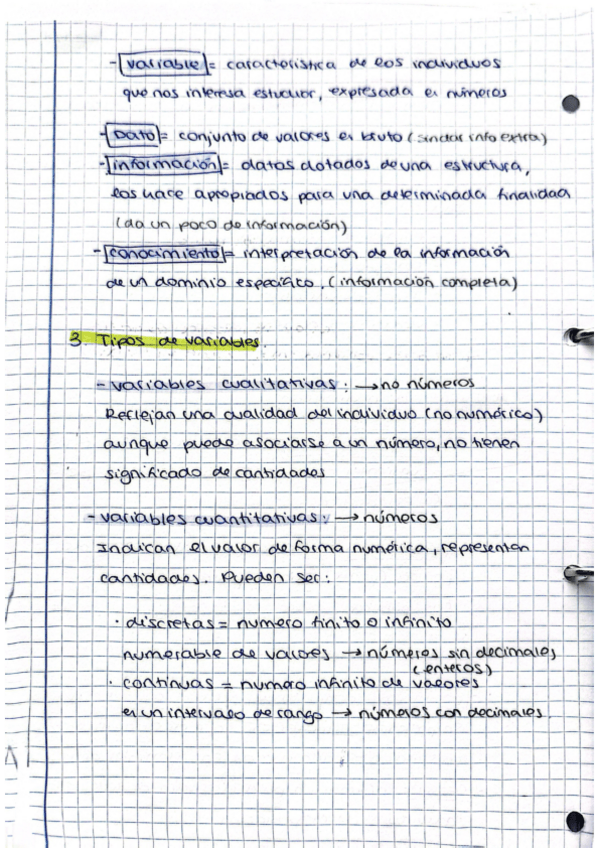 - variable = característica de los individuos
que nos interesa estudiar, expresada en números
- Dato = conjunto de valores en bruto (sin dar info extra)
- información = datos dotados de una estructura,
los hace apropiados para una determinada finalidad
(da un poco de información)
- conocimiento = interpretación de la información
de un dominio específico. (información completa)
3. Tipos de variables.
- variables cualitativas: → no números
Reflejan una cualidad del individuo (no numérico)
aunque puede asociarse a un número, no tienen
significado de cantidades
- variables cuantitativas: → números
Indican el valor de forma numérica, representan
cantidades. Pueden ser:
· discretas = numero finito o infinito
numerable de valores → números sin decimales
(enteros)
· continuas = numero infinito de valores
en un intervalo de rango → números con decimales.